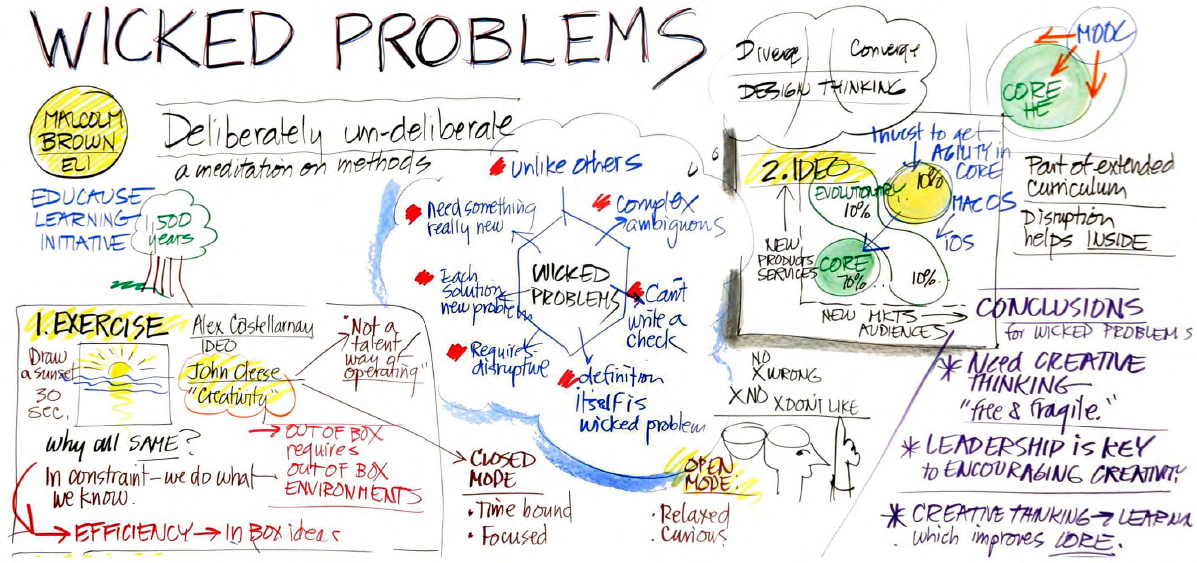 WICKED PROBLEMS
MALCOLM
BROWN
ELI
Deliberately un-deliberate
a meditation on methods
EDUCAUSE
LEARNING
INITIATIVE
1,500
years
unlike others
Need something
really new
complex
ambiguous
Each
solution
new problem
WICKED
PROBLEMS
Can't
write a
check
Requires
disruptive
definition
itself is
wicked problem
1. EXERCISE
Draw
a sunset
30
sec.
Alex Castellarnau
IDEO
John Cleese
"Creativity"
"Not a
talent
way of
operating"
Why all SAME?
In constraint - we do what
we know.
→ OUT OF BOX
requires
OUT OF BOX
ENVIRONMENTS
→ EFFICIENCY → In BOX ideas
CLOSED
MODE
• Time bound
• Focused
OPEN
MODE:
• Relaxed
• Curious
NO
X WRONG
X NO X DON'T LIKE
Diverge Converge
DESIGN THINKING
2. IDEO
Invest to get
AGILITY in
CORE
EVOLUTIONARY...
10%
10%
MAC OS
iOS
NEW
PRODUCTS
SERVICES
CORE
70%
10%
NEW MKTS →
AUDIENCES
MOOC
CORE
HE
Part of extended
curriculum
Disruption
helps INSIDE
CONCLUSIONS
for WICKED PROBLEMS
* Need CREATIVE
THINKING
"free & fragile."
* LEADERSHIP is KEY
to ENCOURAGING CREATIVITY
* CREATIVE THNKING → LEARNN
which improves CORE.